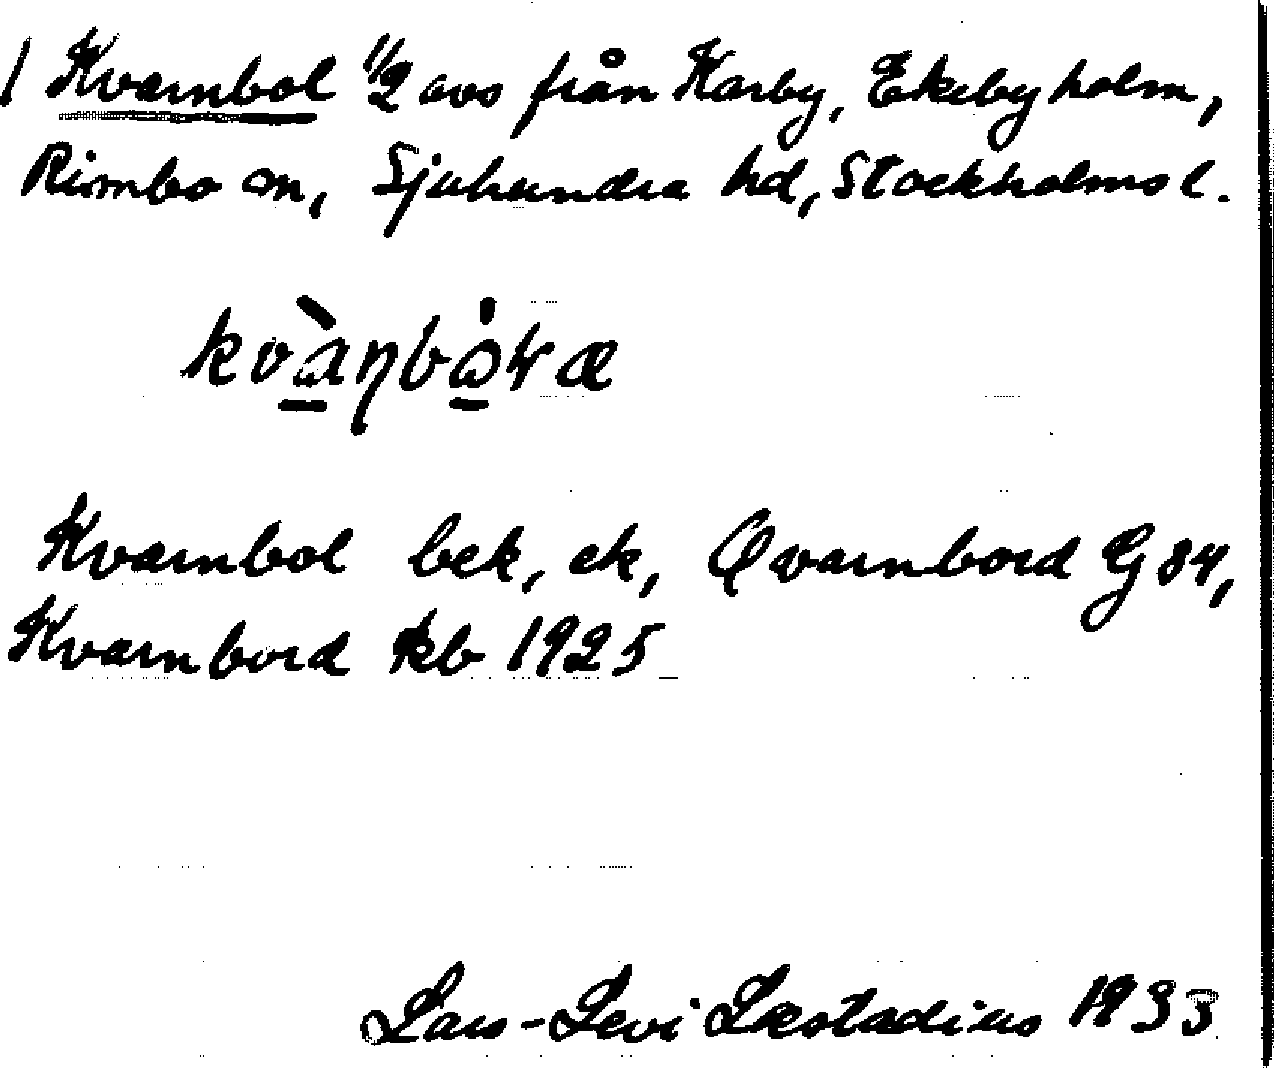 1 Kvarnbol 1/2 avs från Karby, Ekebyholm,
Rimbo sn, Sjuhundra hd, Stockholms l.
Kvarnbol bek, ek, Qvarnbord G 84,
Kvarnbord kb 1925
Lars-Levi Læstadius 1933